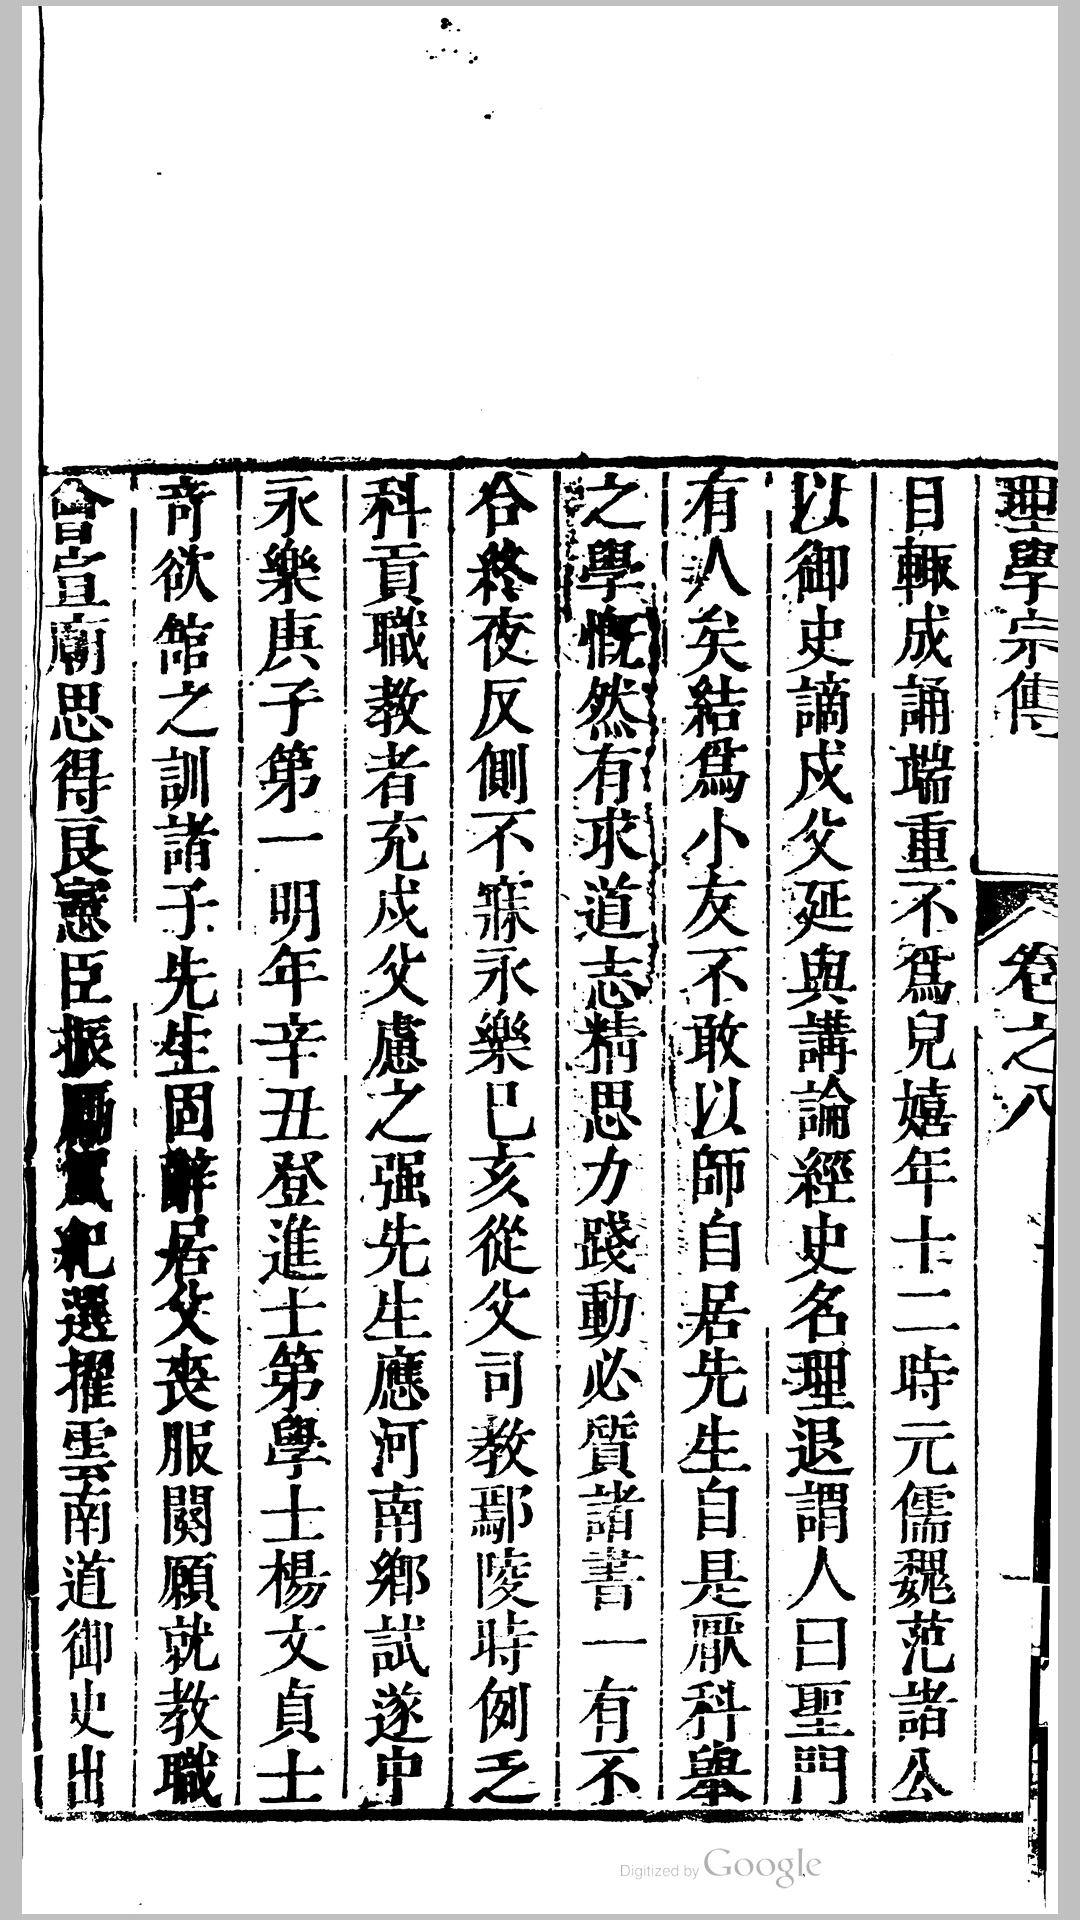 理學宗傳 卷之八
目輙成誦端重不爲兒嬉年十二時元儒魏范諸公
以御史謫戍父延與講論經史名理退謂人曰聖門
有人矣結爲小友不敢以師自居先生自是厭科舉
之學慨然有求道志精思力踐動必質諸書一有不
合終夜反側不寐永樂己亥從父司教鄢陵時例乏
科貢職教者充戍父慮之强先生應河南鄉試遂中
永樂庚子第一明年辛丑登進士第學士楊文貞士
奇欲舘之訓諸子先生固辭居父喪服闋願就教職
會宣廟思得良憲臣振勵風紀選擢雲南道御史出
Digitized by Google